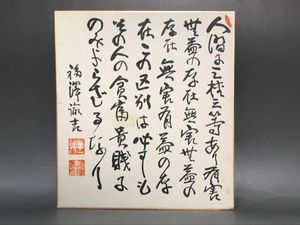 人間に三様三等あり有害
無益の存在無害無益の
存在無害有益の存
在この区別は必ずしも
その人の貧富貴賤に
のみよらざるなり
福澤諭吉